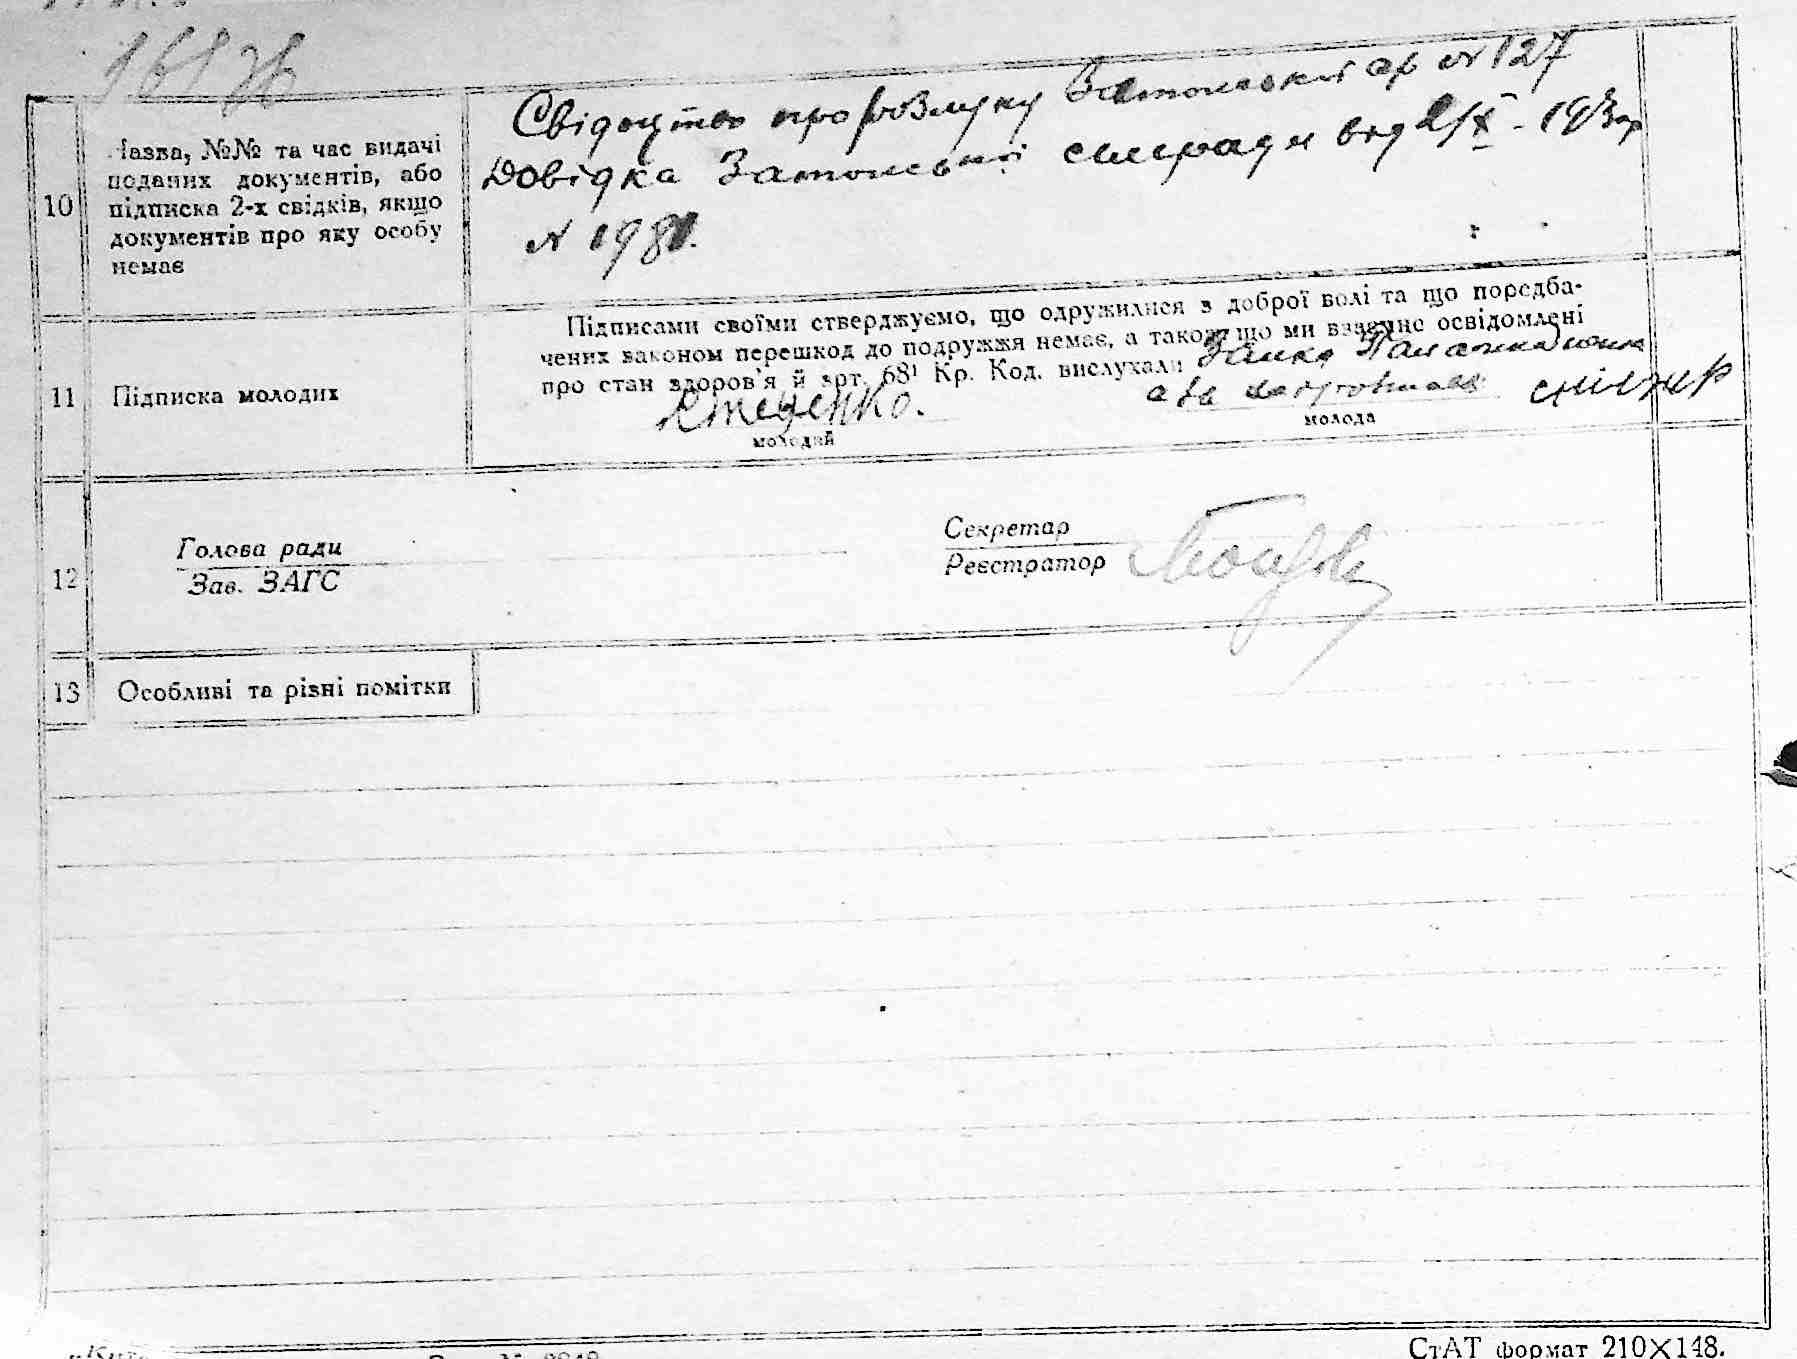 10
Назва, №№ та час видачі
поданих документів, або
підписка 2-х свідків, якщо
документів про яку особу
немає
Свідоцтво про розлуку Затонський № 127
Довідка Затонської сільради від 2/X - 193
N 1981.
11
Підписка молодих
Підписами своїми стверджуємо, що одружилися з доброї волі та що передба-
чених законом перешкод до подружжя немає, а також що ми взаємно освідомлені
про стан здоров'я й арт. 68¹ Кр. Код. вислухали
Стеценко.
молодий
молода
12
Голова ради
Зав. ЗАГС
Секретар
Реєстратор
13
Особливі та різні помітки
СтАТ формат 210×148.